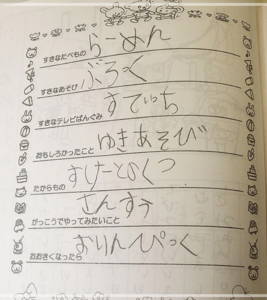 らーめん
すきなたべもの
ぶろっく
すきなあそび
すてぃっち
すきなテレビばんぐみ
ゆきあそび
おもしろかったこと
すけーとらくつ
たからもの
さんすう
がっこうでやってみたいこと
おりんぴっく
おおきくなったら